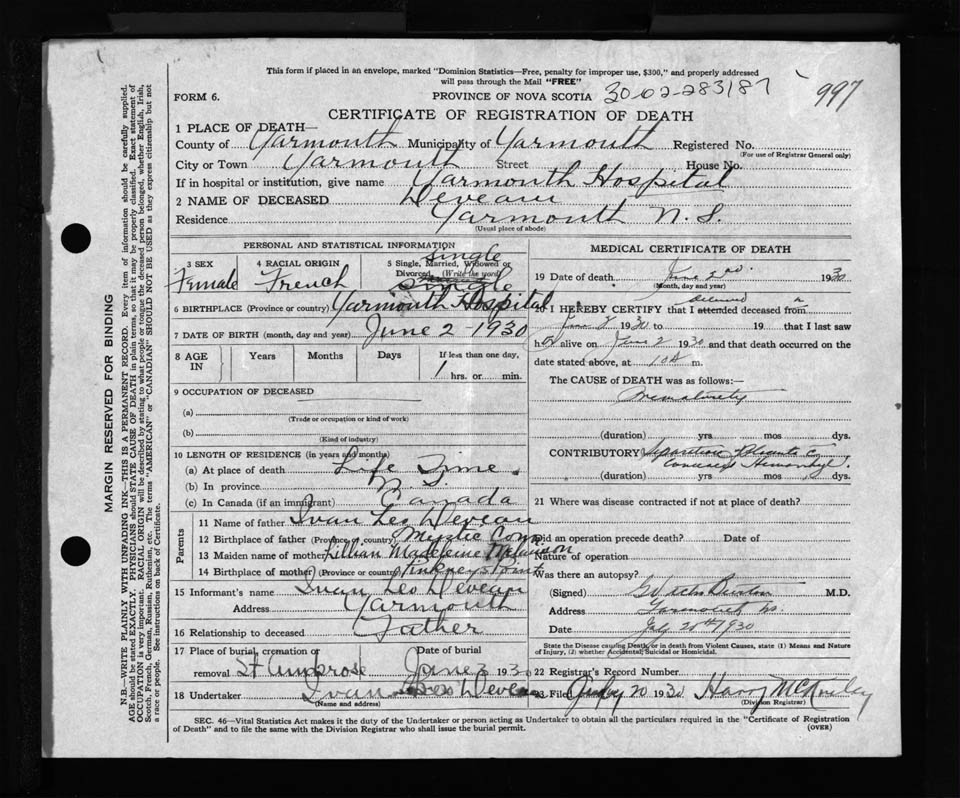 This form if placed in an envelope, marked "Dominion Statistics—Free, penalty for improper use, $300," and properly addressed
will pass through the Mail "FREE"
FORM 6. PROVINCE OF NOVA SCOTIA 30-02-283187 997
CERTIFICATE OF REGISTRATION OF DEATH
1 PLACE OF DEATH—
County of Yarmouth Municipality of Yarmouth Registered No.
(For use of Registrar General only)
City or Town Yarmouth Street House No.
If in hospital or institution, give name Yarmouth Hospital
2 NAME OF DECEASED Deveau
Residence Yarmouth N. S.
(Usual place of abode)
PERSONAL AND STATISTICAL INFORMATION
3 SEX 4 RACIAL ORIGIN 5 Single, Married, Widowed or Divorced (Write the word)
Single
Female French Single
6 BIRTHPLACE (Province or country) Yarmouth Hospital
7 DATE OF BIRTH (month, day and year) June 2 - 1930
8 AGE IN Years Months Days If less than one day,
1 hrs. or min.
9 OCCUPATION OF DECEASED
(a)
(Trade or occupation or kind of work)
(b)
(Kind of industry)
10 LENGTH OF RESIDENCE (in years and months)
(a) At place of death Life Time.
(b) In province
(c) In Canada (if an immigrant) Canada
Parents
11 Name of father Ivan Leo Deveau
12 Birthplace of father (Province or country) Mystic Conn
13 Maiden name of mother Lillian Madeleine
14 Birthplace of mother (Province or country) Pinkneys Point
15 Informant's name Ivan Leo Deveau
Address Yarmouth
16 Relationship to deceased Father
17 Place of burial, cremation or removal St Ambrose Date of burial June 3 1930
18 Undertaker Ivan Leo Deveau
(Name and address)
MEDICAL CERTIFICATE OF DEATH
19 Date of death June 2nd. 1930
(Month, day and year)
20 I HEREBY CERTIFY that I attended deceased from
June 2 1930 to 19 that I last saw
h alive on June 2 1930 and that death occurred on the
date stated above, at 10 A m.
The CAUSE of DEATH was as follows:—
Prematurity
(duration) yrs mos dys.
CONTRIBUTORY Separation Placenta
Hemorrhage.
(duration) yrs mos dys.
21 Where was disease contracted if not at place of death?
Did an operation precede death? Date of
Nature of operation
Was there an autopsy?
(Signed) Burton M.D.
Address Yarmouth N.S.
Date July 20th 1930
State the Disease causing Death, or in death from Violent Causes, state (1) Means and Nature
of Injury, (2) whether Accidental, Suicidal or Homicidal.
22 Registrar's Record Number
23 Filed July 20 1930 Harry
(Division Registrar)
SEC. 46—Vital Statistics Act makes it the duty of the Undertaker or person acting as Undertaker to obtain all the particulars required in the "Certificate of Registration
of Death" and to file the same with the Division Registrar who shall issue the burial permit.
(OVER)
MARGIN RESERVED FOR BINDING
N.B.—WRITE PLAINLY WITH UNFADING INK—THIS IS A PERMANENT RECORD. Every item of information should be carefully supplied.
AGE should be stated EXACTLY. PHYSICIANS should STATE CAUSE OF DEATH in plain terms, so that it may be properly classified. Exact statement of
OCCUPATION is very important. RACIAL ORIGIN will be described by stating to what people or tongue the deceased person belonged, whether English, Irish,
Scotch, French, German, Russian, Ruthenian, etc. The terms "AMERICAN" or "CANADIAN" SHOULD NOT BE USED as they express citizenship but not
a race or people. See instructions on back of Certificate.